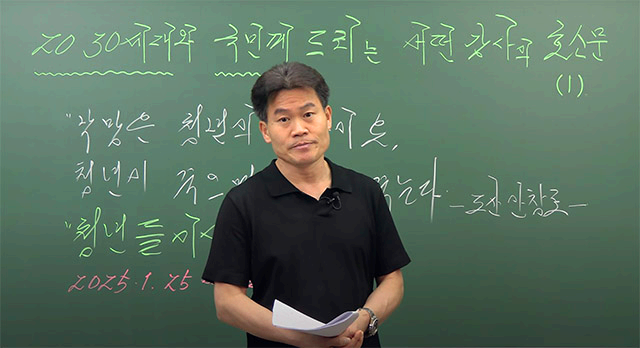 20 30세대와 국민께 드리는 어떤 강사의 호소문
(1)
"낙망은 청년의
청년이 죽으면 죽는다. -도산 안창호-
"청년들이
2025.1.25